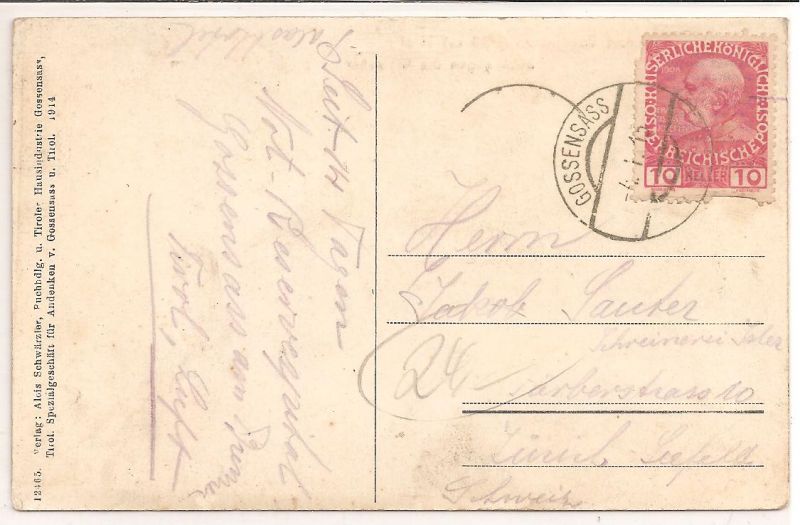 12465. Verlag: Alois Schwärzler, Buchhdlg. u. Tiroler Hausindustrie Gossensass,
Tirol. Spezialgeschäft für Andenken v. Gossensass u. Tirol. 1914
Palasthotel
Seit 14 Tagen
Not-Reservespital
Gossensass am Brenner
Tirol,
KAISERLICHE KÖNIGLICHE ÖSTERREICHISCHE POST
1908
10 HELLER 10
GOSSENSASS
Herrn
Jakob Sauter
Schreinerei
Färberstrasse 10
Zürich Seefeld
Schweiz
24